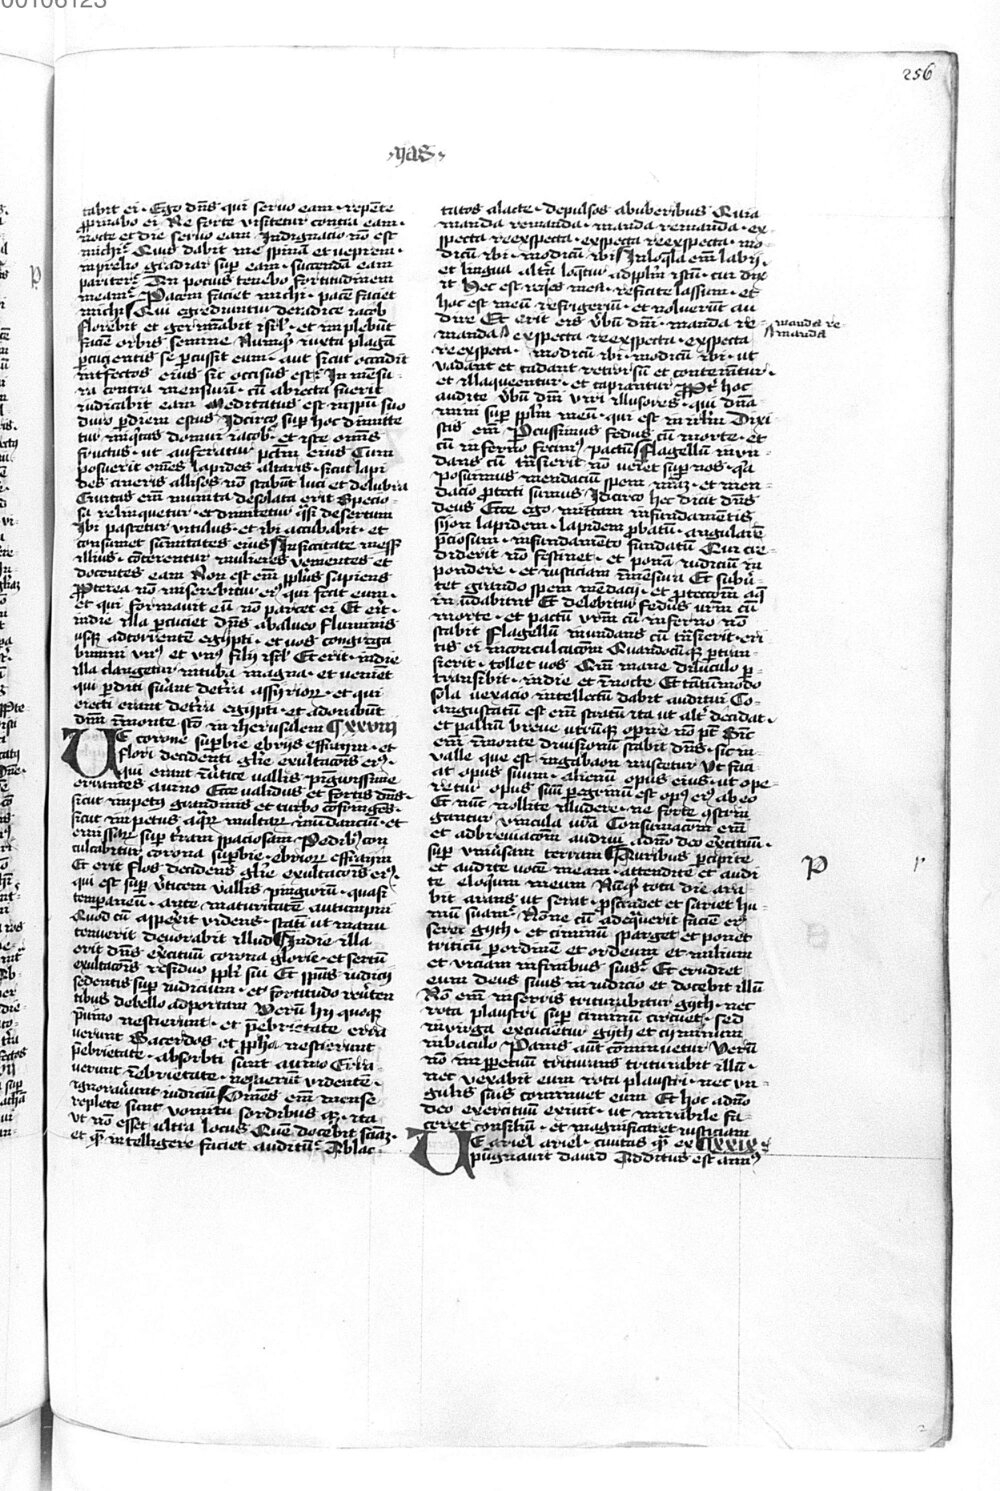 256
·yas·
tabit ei · Ego dn̄s qui seruo eam · repēte
ꝓpinabo ei Ne forte visitetur contra eam ·
nocte et die seruo eam Indignacio nō est
michi Quis dabit me spinā et veprem ·
in prelio gradiar suꝑ eam · succendā eam
pariter An pocius tenebo fortitudinem
meam Pacem faciet michi · pacē faciet
michi Qui egrediuntur de radice iacob
florebit et germīabit isrl · et implebūt
faciē orbis semine Nunqͥ iuxta plagā
ꝑcucientis se ꝑcussit eum · aut sicut occidit
infectos eius sic occisus est In mēsu-
ra contra mensurā · cū abiecta fuerit
iudicabit eam Meditatus est in spū suo
duro ꝑ diem estus Idcirco suꝑ hoc dimitte
tur iniqͥtas domui iacob · et iste om̄is
fructus · ut auferatur pctm̄ eius Cum
posuerit om̄es lapides altaris · sicut lapi
des cineris allisos nō stabūt luci et delubra
Ciuitas em̄ munita desolata erit Specio-
sa relinquetur · et dimittetur qͣsi desertum
Ibi pascetur vitulus · et ibi accubabit · et
consumet sūmitates eius In siccitate messꝭ
illius · cōterentur mulieres venientes et
docentes eam Non est em̄ pplus sapiens
Ꝓpterea nō miserebitur eiꝰ qui fecit eum ·
et qui formauit eū nō parcet ei Et erit ·
in die illa ꝑcuciet dn̄s ab alueo fluminis
usqꝫ ad torrentē egipti · et vos congrega
bimini vnꝰ et vnꝰ filij isrl Et erit · in die
illa clangetur in tuba magna · et veniēt
qui ꝑditi fuāt de terra assyrioꝝ · et qui
eiecti erant de terra egipti · et adorabūt
dn̄m in monte scō in iherusalem Cxxviij
Ue corone suꝑbie ebrijs effraym · et
flori decidenti gl̄ie exultacōis eiꝰ ·
qui erant in ṽtice vallis pīguissime
errantes a uino Ecce validus et fortis dn̄s ·
sicut impetꝰ grandinis et turbo cōfringēs ·
sicut impetus aqͣꝝ multaꝝ inūdanciū · et
emissaꝝ suꝑ terram spaciosam Pedibꝰ con
culcabitur corona suꝑbie · ebrioꝝ effraym
Et erit flos decidens gl̄ie exultacōis eiꝰ
qui est suꝑ ṽticem vallis pinguiū · quasi
temporaneū · ante maturitatē autumpni
Quod cū aspexit videns · statī ut manu
tenuerit deuorabit illud In die illa
erit dn̄s exercituū corona glorie · et sertū
exultacōis residuo ppli sui Et spūs iudicij
sedentis suꝑ iudicium · et fortitudo reuten
tibus de bello ad portam Verū hij quoqꝫ
p̄ uino nescierunt · et p̄ ebrietate erra
uerunt Sacerdos et ꝓpha nescierunt
p̄ ebrietate · absorbti sunt a uino Erra-
uerunt in ebrietate · nescierūt videntē ·
ignorauerūt iudiciū Om̄es em̄ mense
replete sunt vomitu sordibus qꝫ · ita
ut nō esset ultra locus Quē docebit sciāꝫ ·
et qͣꝫ intelligere faciet auditū Ablac-
tatos a lacte · depulsos ab uberibus Quia
manda remanda · manda remanda · ex-
specta reexpecta · expecta reexpecta · mo-
dicū ibi · modicū ibi In loqͣla em̄ labij ·
et lingua altera loquetur ad pplm istū · cui dix
it Hec est reqͥes mea · reficite lassum · et
hoc est meū refrigeriū · et noluerūt au
dire Et erit eis v̄bū dn̄i · manda re-
manda · expecta reexpecta · expecta
reexpecta · modicū ibi · modicū ibi · ut
vadant et cadant retrorsū et conterātur ·
et illaqueentur · et capiantur Ꝓpt̄ hoc
audite v̄bū dn̄i viri illusores · qui dn̄a
mini suꝑ pplm meū · qui est in ihrlm Dixi
stis em̄ Ꝑcussimus fedus cū morte · et
cū inferno fecimꝰ pactū Flagellū inun
dans cū trāsierit nō veniet suꝑ nos · qͥa
posuimus mendaciū spem nr̄aꝫ · et men-
dacio ꝓtecti sumus Idcirco hec dicit dn̄s
deus Ecce ego mittam in fundamētis
syon lapidem · lapidem ꝓbatū · angularē
p̄ciosum · in fundamēto fundatū Qui cre-
diderit nō festinet · et ponā iudiciū in
pondere · et iusticiam in mēsura Et subū-
tet grando spem mēdacij · et ꝓteccōm aqͣ
inūdabūt Et delebitur fedus vr̄m cū
morte · et pactū vr̄m cū inferno nō
stabit Flagellū inundans cū trāsierit · eri
tis ei in conculcacōm Quandocūqꝫ ꝑtran-
sierit · tollet vos Qm̄ mane diluculo ꝑ-
transibit · in die et in nocte Et tātūmodo
sola vexacio intellectū dabit auditui Co-
angustatū est em̄ stratū ita ut alt̄ decidat ·
et palliū breue utrūqꝫ oꝑire nō pt̄ Sic̄
em̄ in monte diuisionū stabit dn̄s · sic in
valle que est in gabaon irascetur Ut faci
at opus suum · alienū opus eius · ut ope-
retur opus suū ꝑegrinū est opꝰ eiꝰ ab eo
Et nūc nolite illudere · ne forte ꝯstrin
gantur vincula vr̄a Consumacōm em̄
et adbreuiacōm audiui a dn̄o deo exercituū ·
suꝑ vniuersam terram Auribus ꝑcipite
et audite vocē meam · attendite et audi
te eloquiū meum Nūqͥ tota die ara
bit arans ut serat · ꝓscindet et sariet hu-
mū suam Nōne cū adequerit faciē eiꝰ
seret gyth · et ciminū sparget et ponet
triticū ꝑ ordinē et ordeum et milium
et viciam in finibus suis Et erudiet
eum deus suus in iudicio et docebit illū
Nō em̄ in serris triturabitur gyth · nec
rota plaustri suꝑ ciminū circuiet · sed
in virga excucietur gyth et cyminum
in baculo Panis aūt cōminuetur Verū
nō in ꝑpetuū triturans triturabit illū ·
nec vexabit eum rota plaustri · nec vn-
gulis suis cōminuet eum Et hoc a dn̄o
deo exercituū exiuit · ut mirabile fa-
ceret consiliū · et magnificaret iusticiam
Ue ariel ariel · ciuitas qͣꝫ ex Cxxix
pūgnauit dauid Additus est annꝰ
manda re-
manda
P
r
p